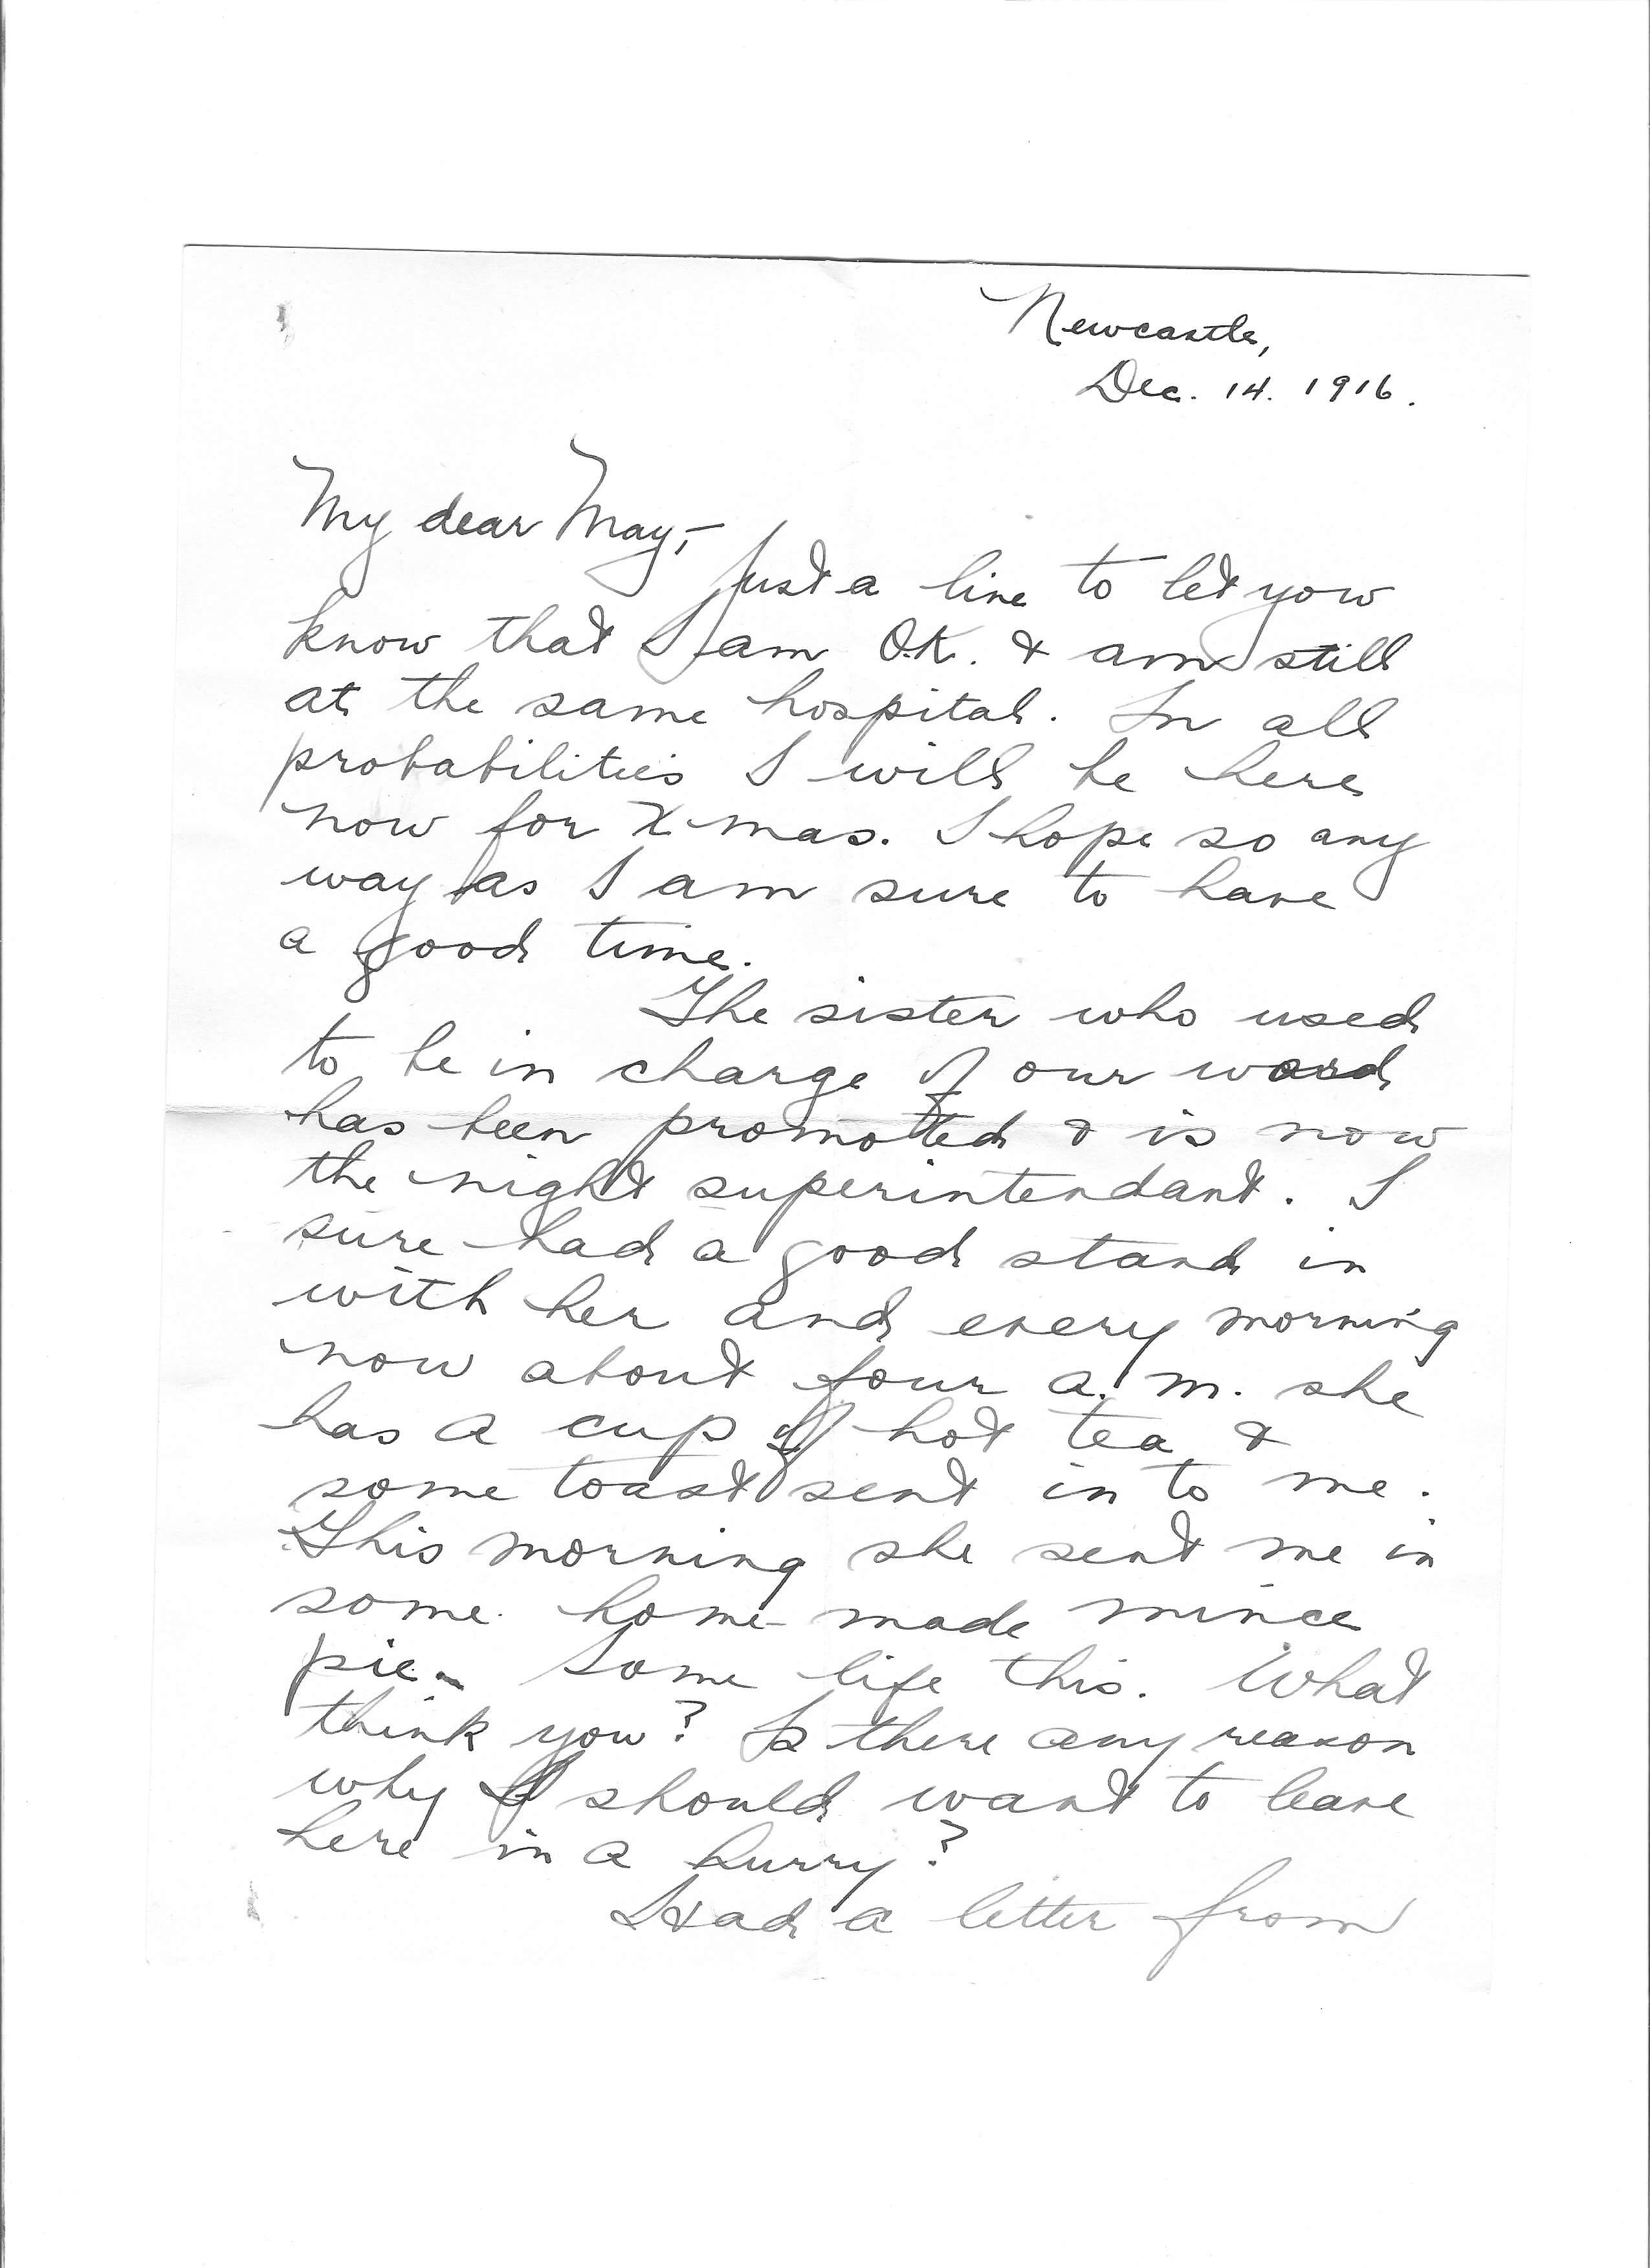 Newcastle,
Dec. 14. 1916.
My dear May,-
Just a line to let you
know that I am O.K. & am still
at the same hospital. In all
probabilities I will be here
now for Xmas. I hope so any
way as I am sure to have
a good time.
The sister who used
to be in charge of our ward
has been promoted & is now
the night superintendant. I
sure had a good stand in
with her and every morning
now about four a.m. she
has a cup of hot tea &
some toast sent in to me.
This morning she sent me in
some home-made mince
pie. Some life this. What
think you? Is there any reason
why I should want to leave
here in a hurry?
Had a letter from